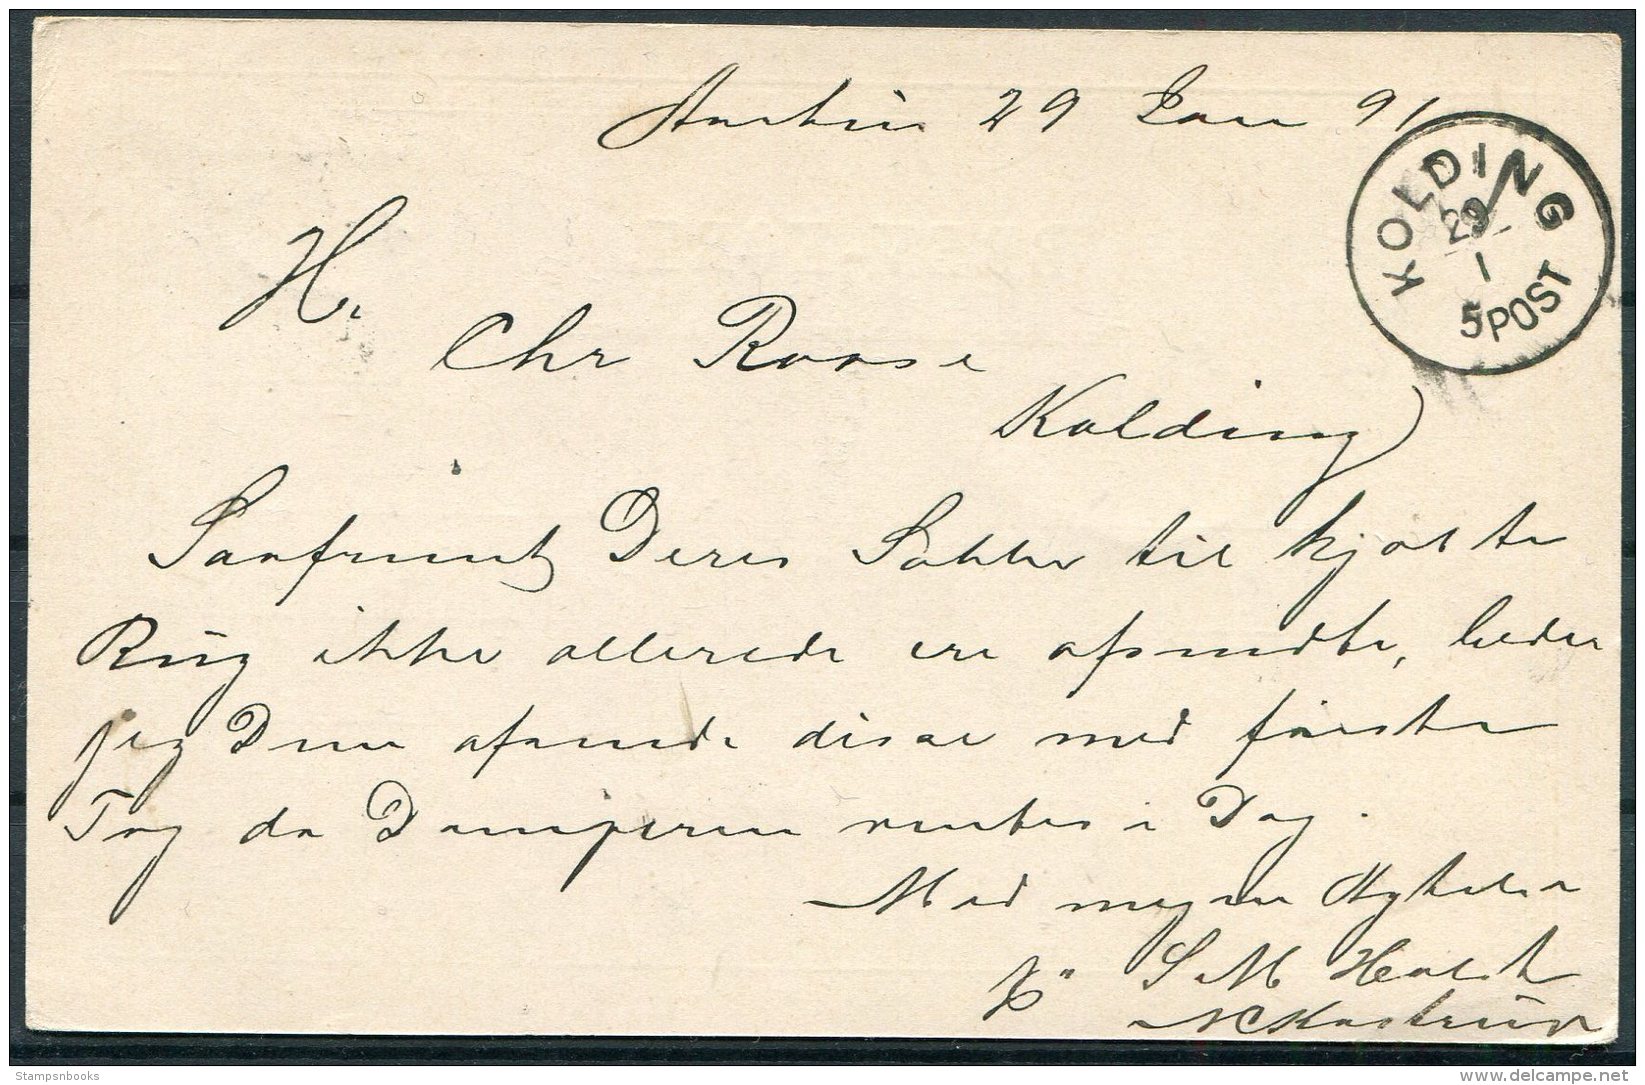 Aarhus 29 Jan 91
KOLDING
29
1
5 POST
H.
Chr Raase
Kolding
Saafremt Deres Sække til kjøbte
Rug ikke allerede ere afsendte, beder
jeg Dem afsende disse med første
Tog da Damperen ventes i Dag.
Med megen Agtelse
S M Holst
Stampsnbooks
www.delcampe.net